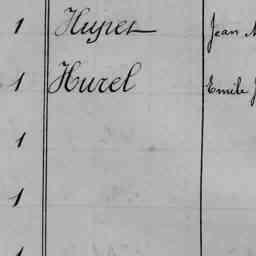 1 Huyet Jean
1 Hurel Emile J
1
1
1